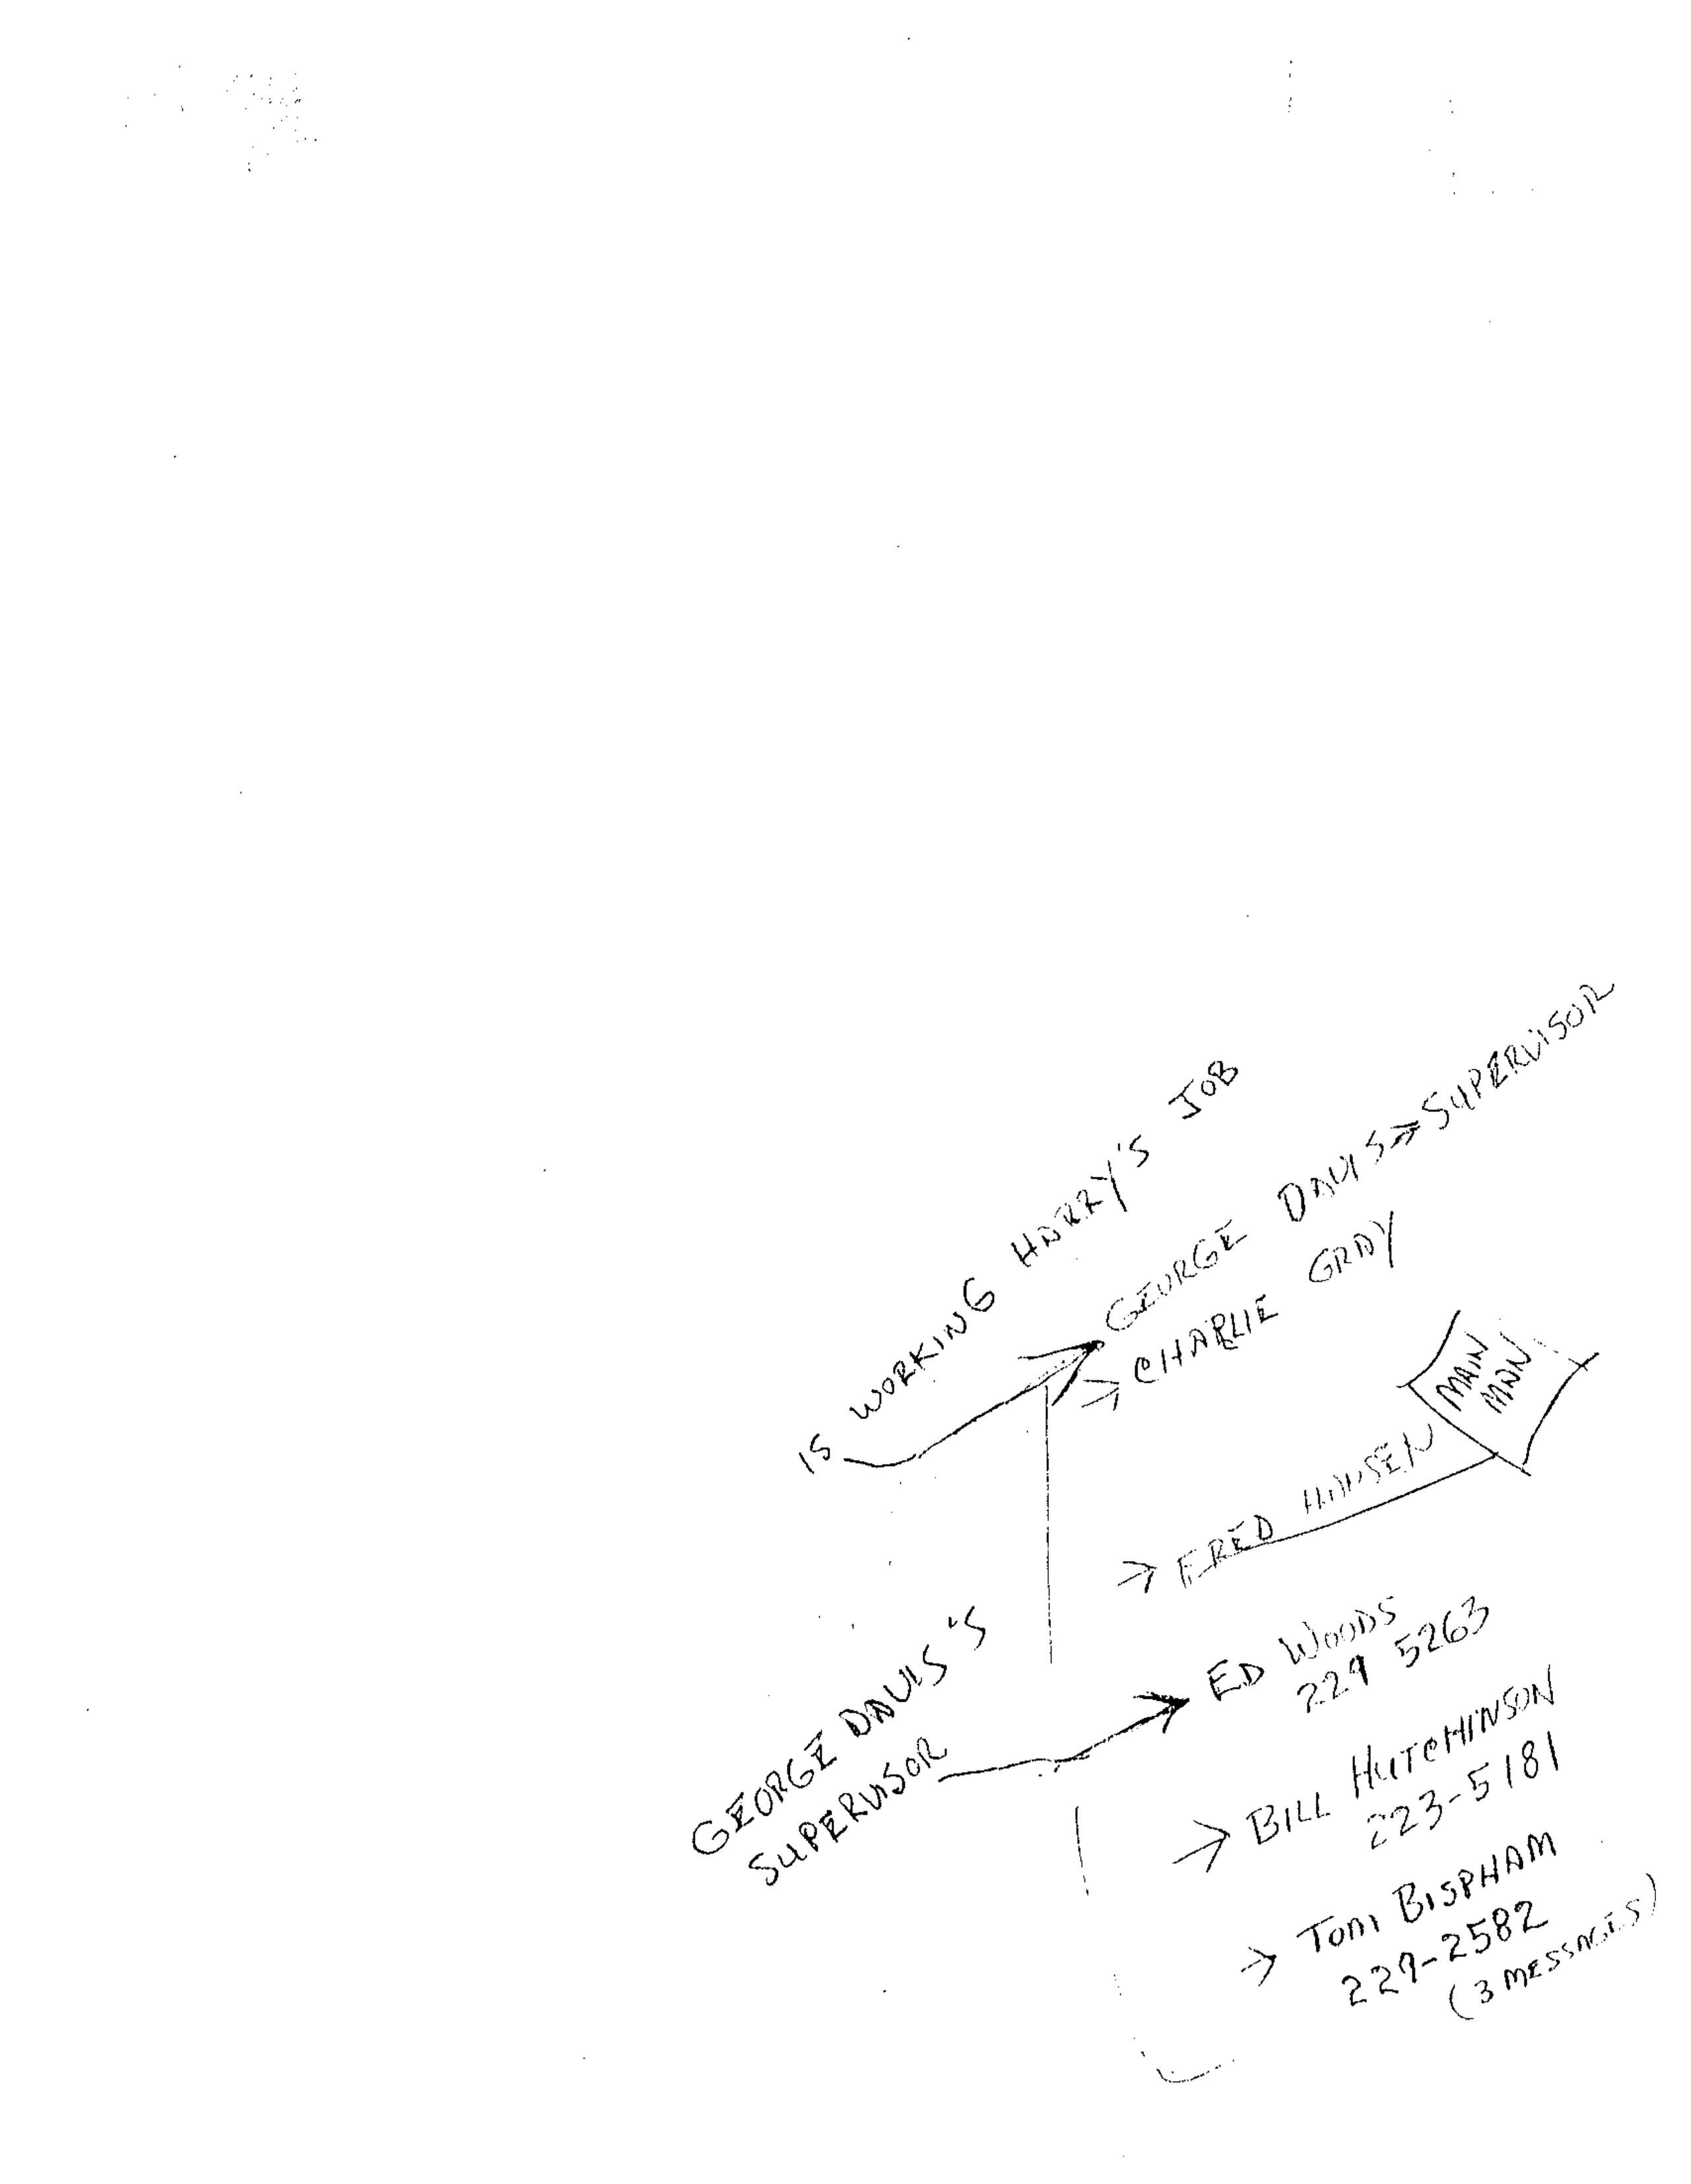 IS WORKING HARRY'S JOB
GEORGE DAVIS → SUPERVISOR
→ CHARLIE GRAY
MAIN
MAN
→ FRED HANSEN
GEORGE DAVIS'S
SUPERVISOR
→ ED WOODS
229 5263
→ BILL HUTCHINSON
223-5181
→ TOM BISPHAM
229-2582
(3 MESSAGES)